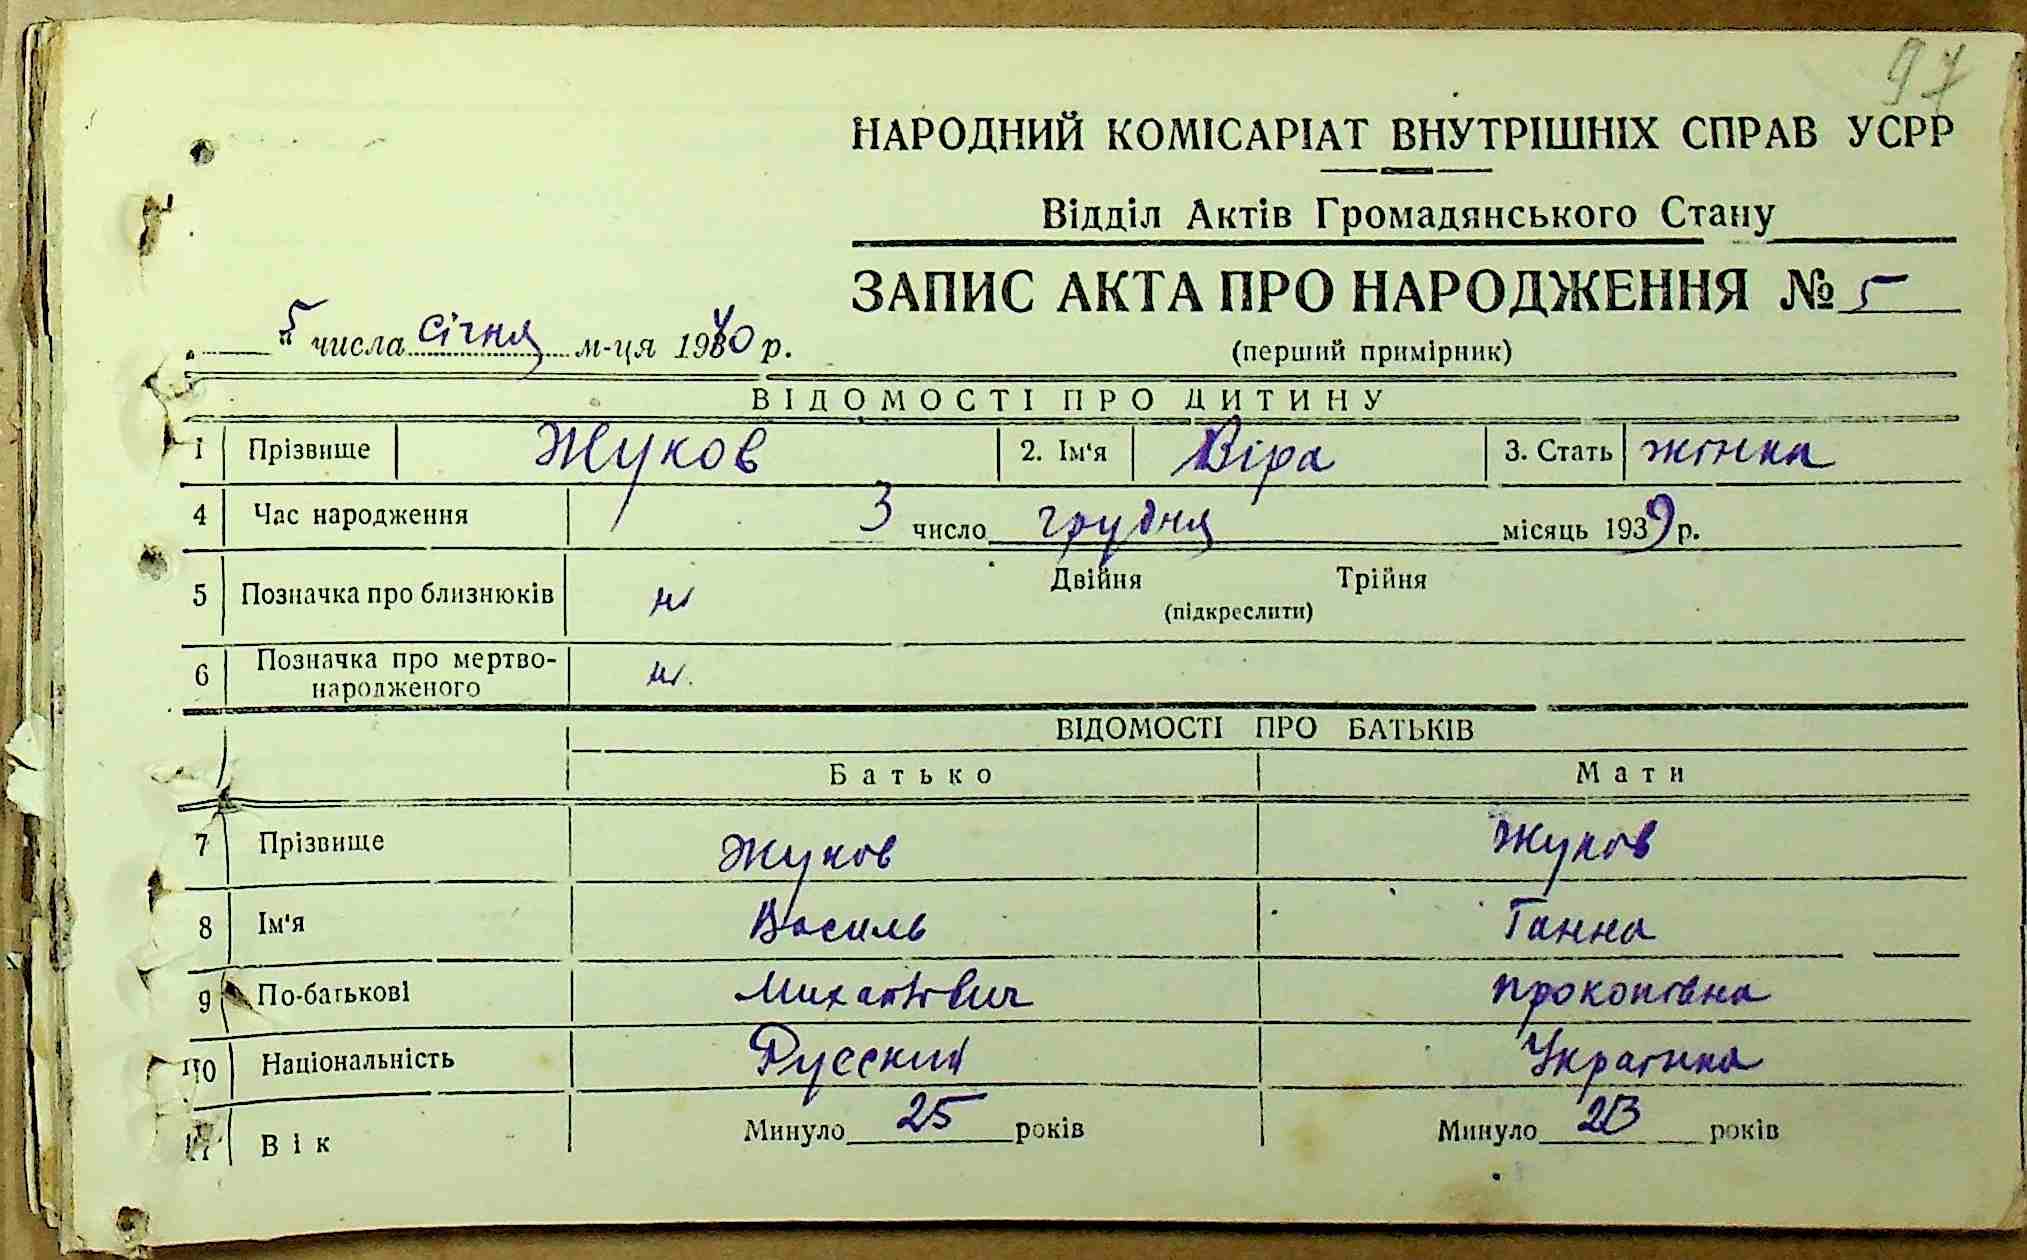 97
НАРОДНИЙ КОМІСАРІАТ ВНУТРІШНІХ СПРАВ УСРР
Відділ Актів Громадянського Стану
ЗАПИС АКТА ПРО НАРОДЖЕННЯ № 5
5 " числа січня м-ця 1940 р.
(перший примірник)
ВІДОМОСТІ ПРО ДИТИНУ
1 Прізвище Жуков 2. Ім'я Віра 3. Стать жінка
4 Час народження 3 число грудня місяць 1939 р.
5 Позначка про близнюків ні Двійня Трійня
(підкреслити)
6 Позначка про мертво-
народженого ні.
ВІДОМОСТІ ПРО БАТЬКІВ
Батько Мати
7 Прізвище Жуков Жуков
8 Ім'я Василь Ганна
9 По-батькові Михайлович Прокопівна
10 Національність Русский Українка
11 Вік Минуло 25 років Минуло років